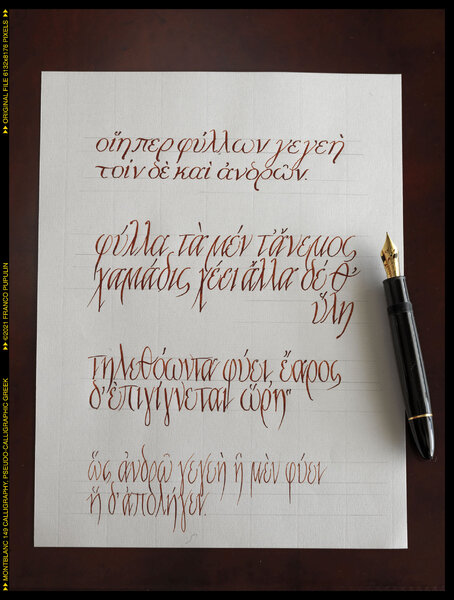 οἵη περ φύλλων γεγεὴ
τοίν δὲ καὶ ἀνδρῶν.
φύλλα τὰ μέν τ'ἄνεμος
χαμάδις χέει ἄλλα δέ θ'
ὕλη
τηλεθόωντα φύει ἔαρος
δ'ἐπιγίγνεται ὥρῃ
ὥς ἀνδρῶ γεγεὴ ἣ μὲν φύει
ἣ δ'ἀπολήγει.
▶▶ MONTBLANC 149 CALLIGRAPHY, PSEUDO-CALLIGRAPHIC GREEK
▶▶ ©2021 FRANCO PUPULIN
▶▶ ORIGINAL FILE 6132x8176 PIXELS